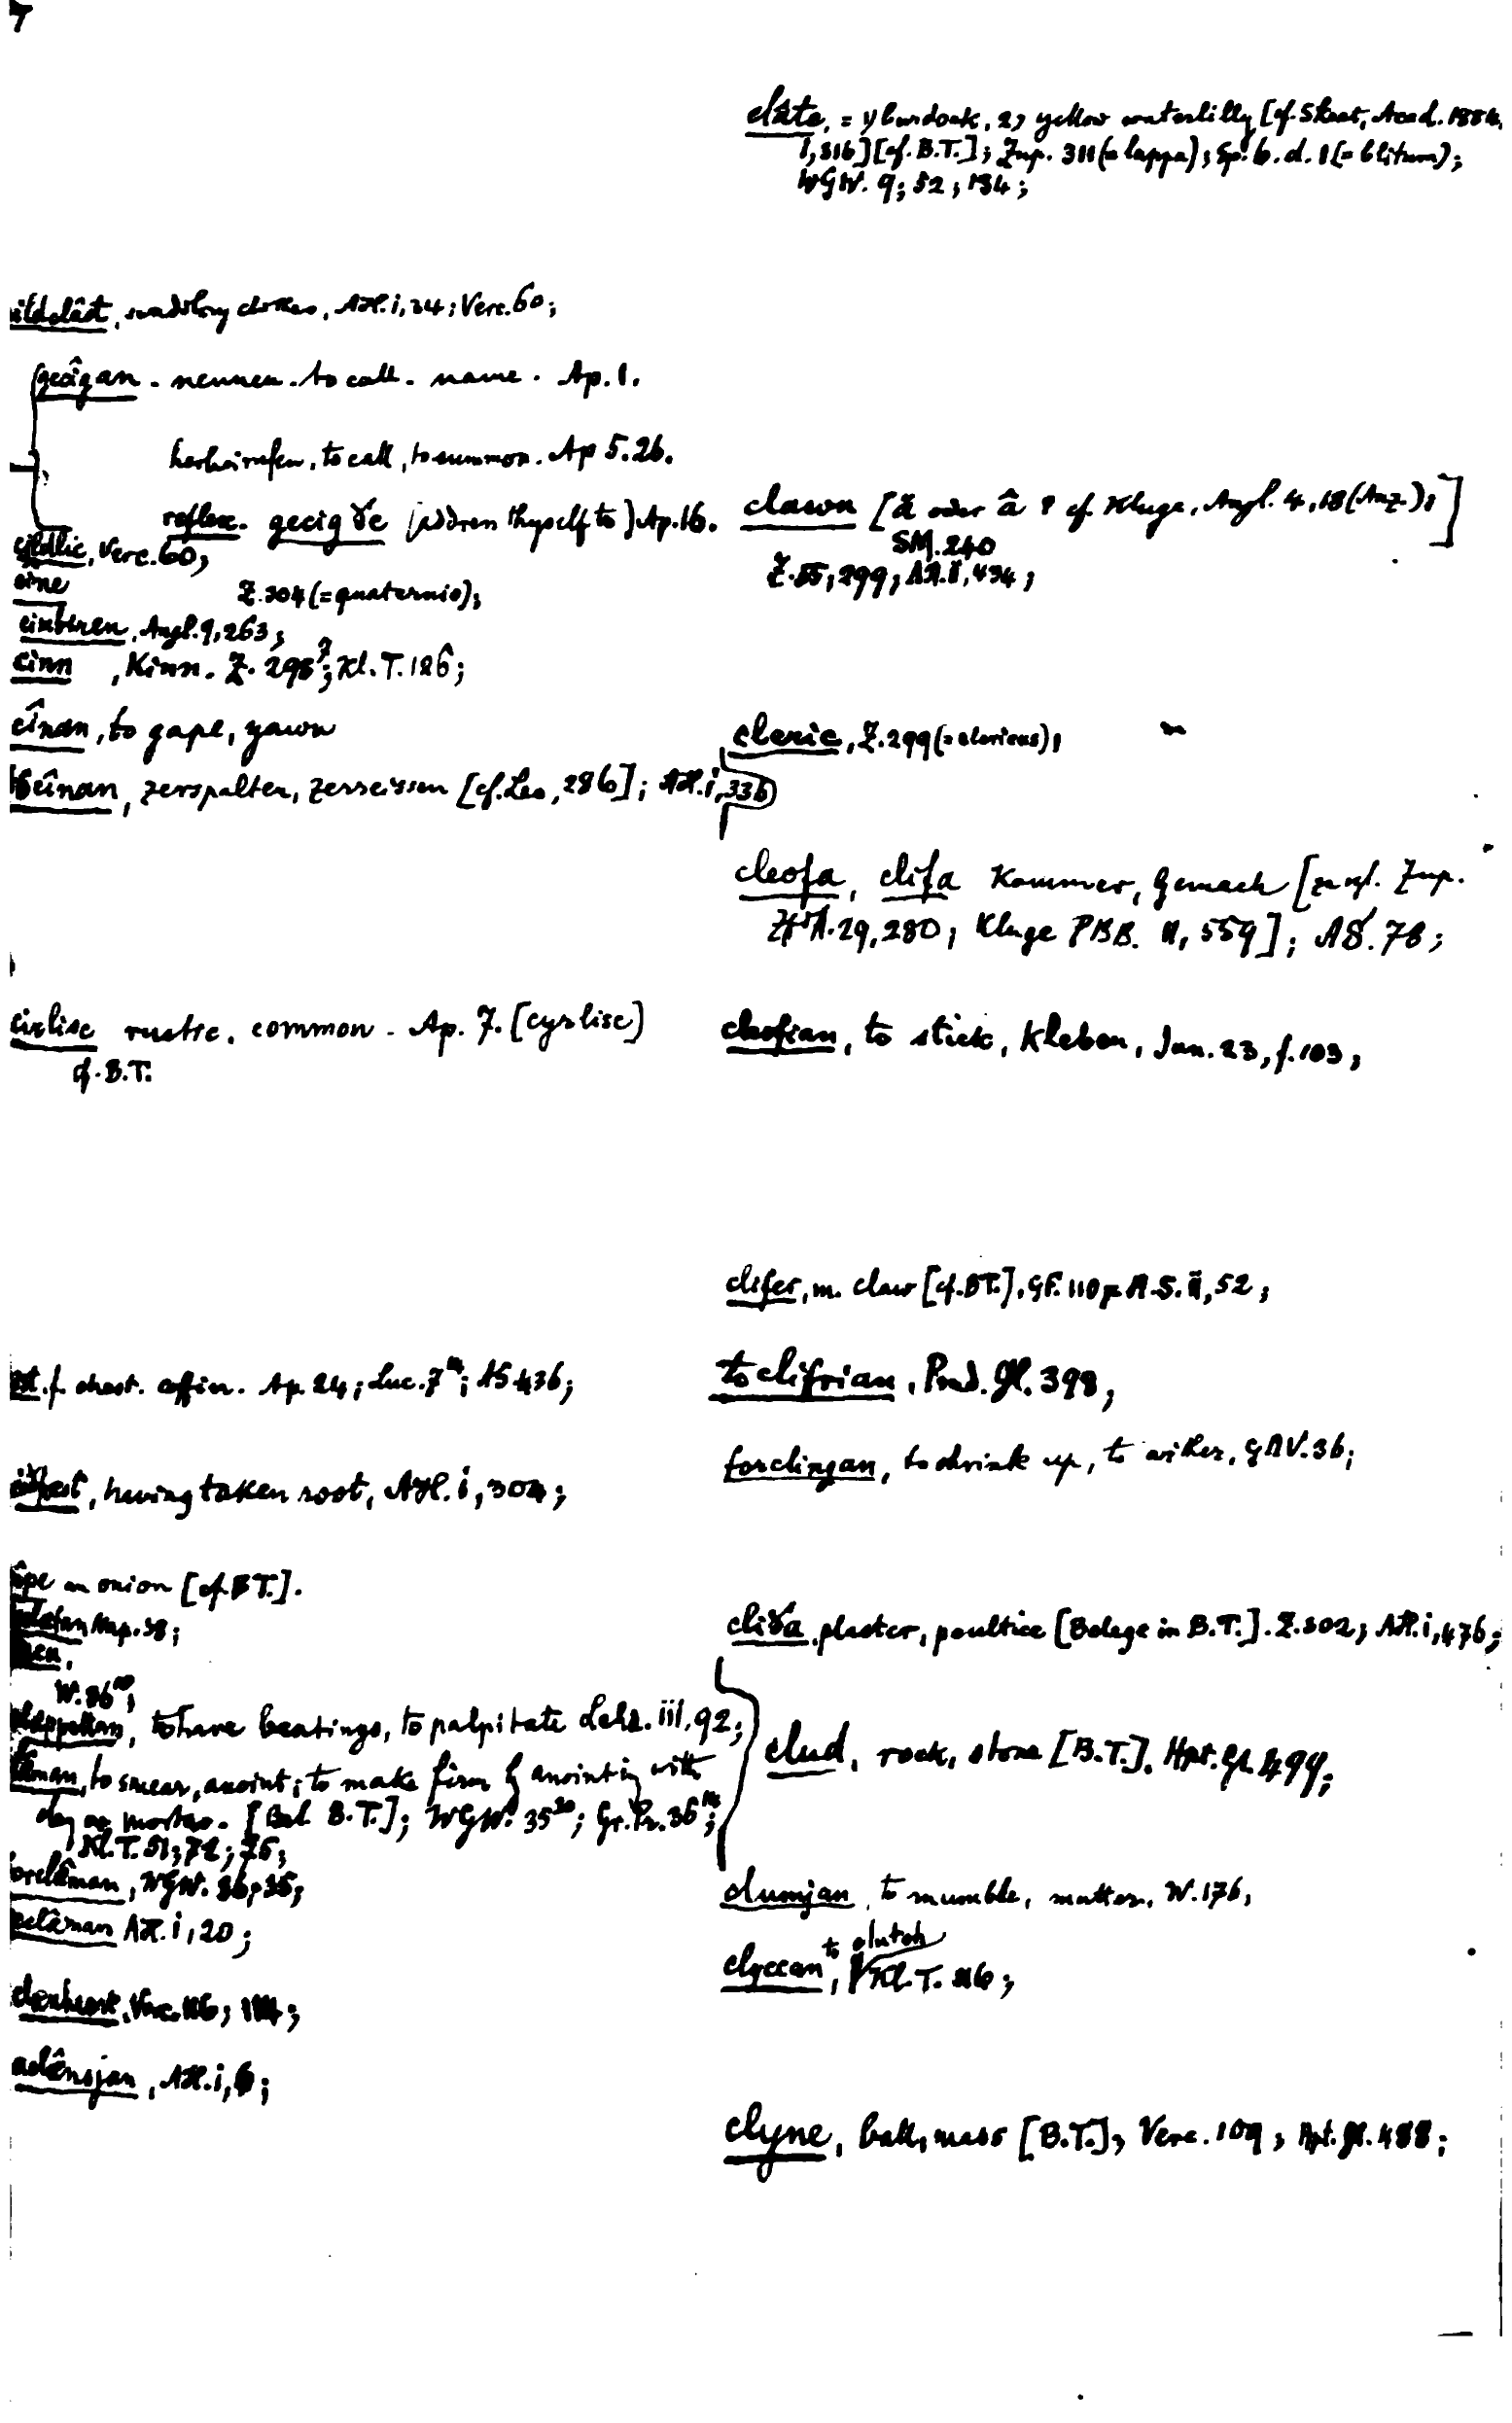 clâte, = 1) burdock, 2) yellow waterlilly [cf. Skeat, Acad. 1884,
1, 316] [cf. B.T.]; Zup. 311 (= lappa); Sp. b. d. 1 (= blitum);
WGW. 9; 52; 134;
cildclât, swadling clothes, AH. i, 34; Verc. 60;
gecîgan - nennen - to call - name. Ap. 1.
herbeirufen, to call, to summon. Ap 5. 26.
reflex. gecig ðe (address thyself to) Ap. 16.
cildlic, Verc. 60;
cine Z. 304 (= quaternio);
Angl. 9, 263;
cinn, Kinn. Z. 298⁷; Kl. T. 126;
cînan, to gape, yawn
tôcînan, zerspalten, zerreissen [cf. Leo, 286]; AH. i, 336
cirlisc rustic. common - Ap. 7. [cyrlisc]
cf. B.T.
f. chest. coffin. Ap. 24; Luc. 7; AS 436;
having taken root, AH. i, 304;
an onion [cf. BT.].
Nap. 38;
W. 86
to have beatings, to palpitate Lchd. iii, 92;
to smear, anoint; to make firm by anointing with
clay or mortar. [Bel. B.T.]; WGW. 35³⁰; Gr. Pr. 36;
Kl. T. 51; 72; 75;
forclâman, WGW. 86; 35;
beclâman AH. i, 20;
AH. i, 6;
clawu [ă oder â? cf. Kluge, Angl. 4, 18 (Anz.);]
SM. 240
Z. 55, 299, AH. ii, 434;
cleric, Z. 299 (= clericus);
cleofa, clifa Kammer, Gemach [vgl. Zup.
ZfdA. 29, 280; Kluge PBB. 11, 559]; AS. 78;
cleofian, to stick, kleben, Jun. 23, f. 103;
clifer, m. claw [cf. BT.], GF. 110 A.S. ii, 52;
toclifrian, Prud. Gl. 398;
forclingan, to shrink up, to wither, GNV. 36;
cliða plaster, poultice [Belege in B.T.]. Z. 302; AH. i, 476;
clud, rock, stone [B.T.]. Hpt. Gl. 499;
clumjan, to mumble, mutter, W. 176;
clyccan, to clutch Kl. T. 26;
clyne, ball, mass [B.T.]; Verc. 109; Hpt. Gl. 488;